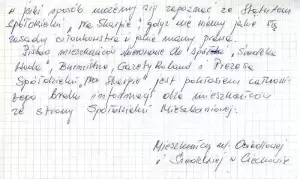 w jaki sposób możemy się zapoznać ze Statutem
Spółdzielni „Na Skarpie", gdyż nie mamy jakie są
zasady członkowstwa i jakie mamy prawa.
Pismo mieszkańców skierowane do „Środka
Woda", Burmistrza, Gazety i Prezesa
Spółdzielni „Na Skarpie" jest
braku informacji dla mieszkańców
ze strony Spółdzielni Mieszkaniowej.
Mieszkańcy ul. Osiedlowej
i w Ciechowie